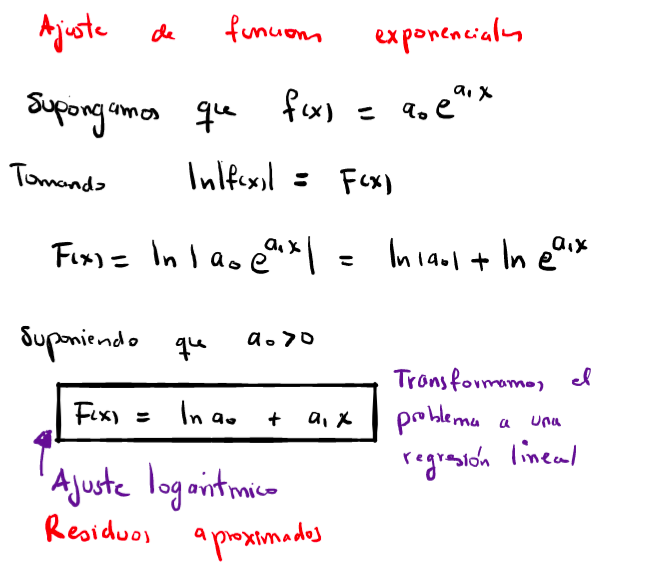 Ajuste de funciones exponenciales
Supongamos que f(x) = a₀e^{a₁x}
Tomando ln|f(x)| = F(x)
F(x) = ln|a₀e^{a₁x}| = ln|a₀| + ln e^{a₁x}
Suponiendo que a₀>0
F(x) = ln a₀ + a₁x
Transformamos el
problema a una
regresión lineal
Ajuste logarítmico
Residuos aproximados